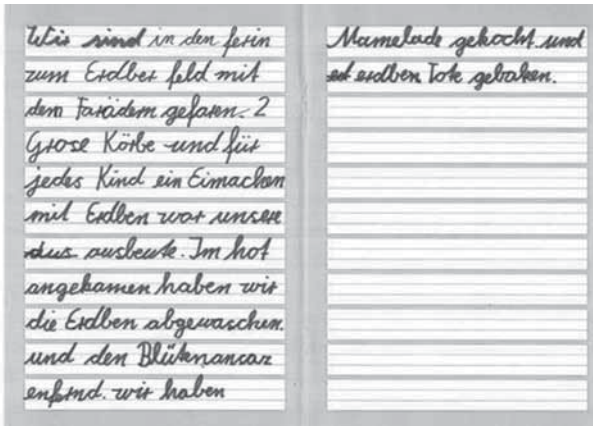 Wir sind in den ferin
zum Erdber feld mit
dem Farädern gefaren. 2
Grose Körbe und für
jedes Kind ein Eimachen
mit Erdben war unsere
aus ausbeute. Im hot
angekamen haben wir
die Erdben abgewaschen.
und den Blütenansaz
enfernd. wir haben
Mamelade gekocht und
ed erdben Tote gebaken.